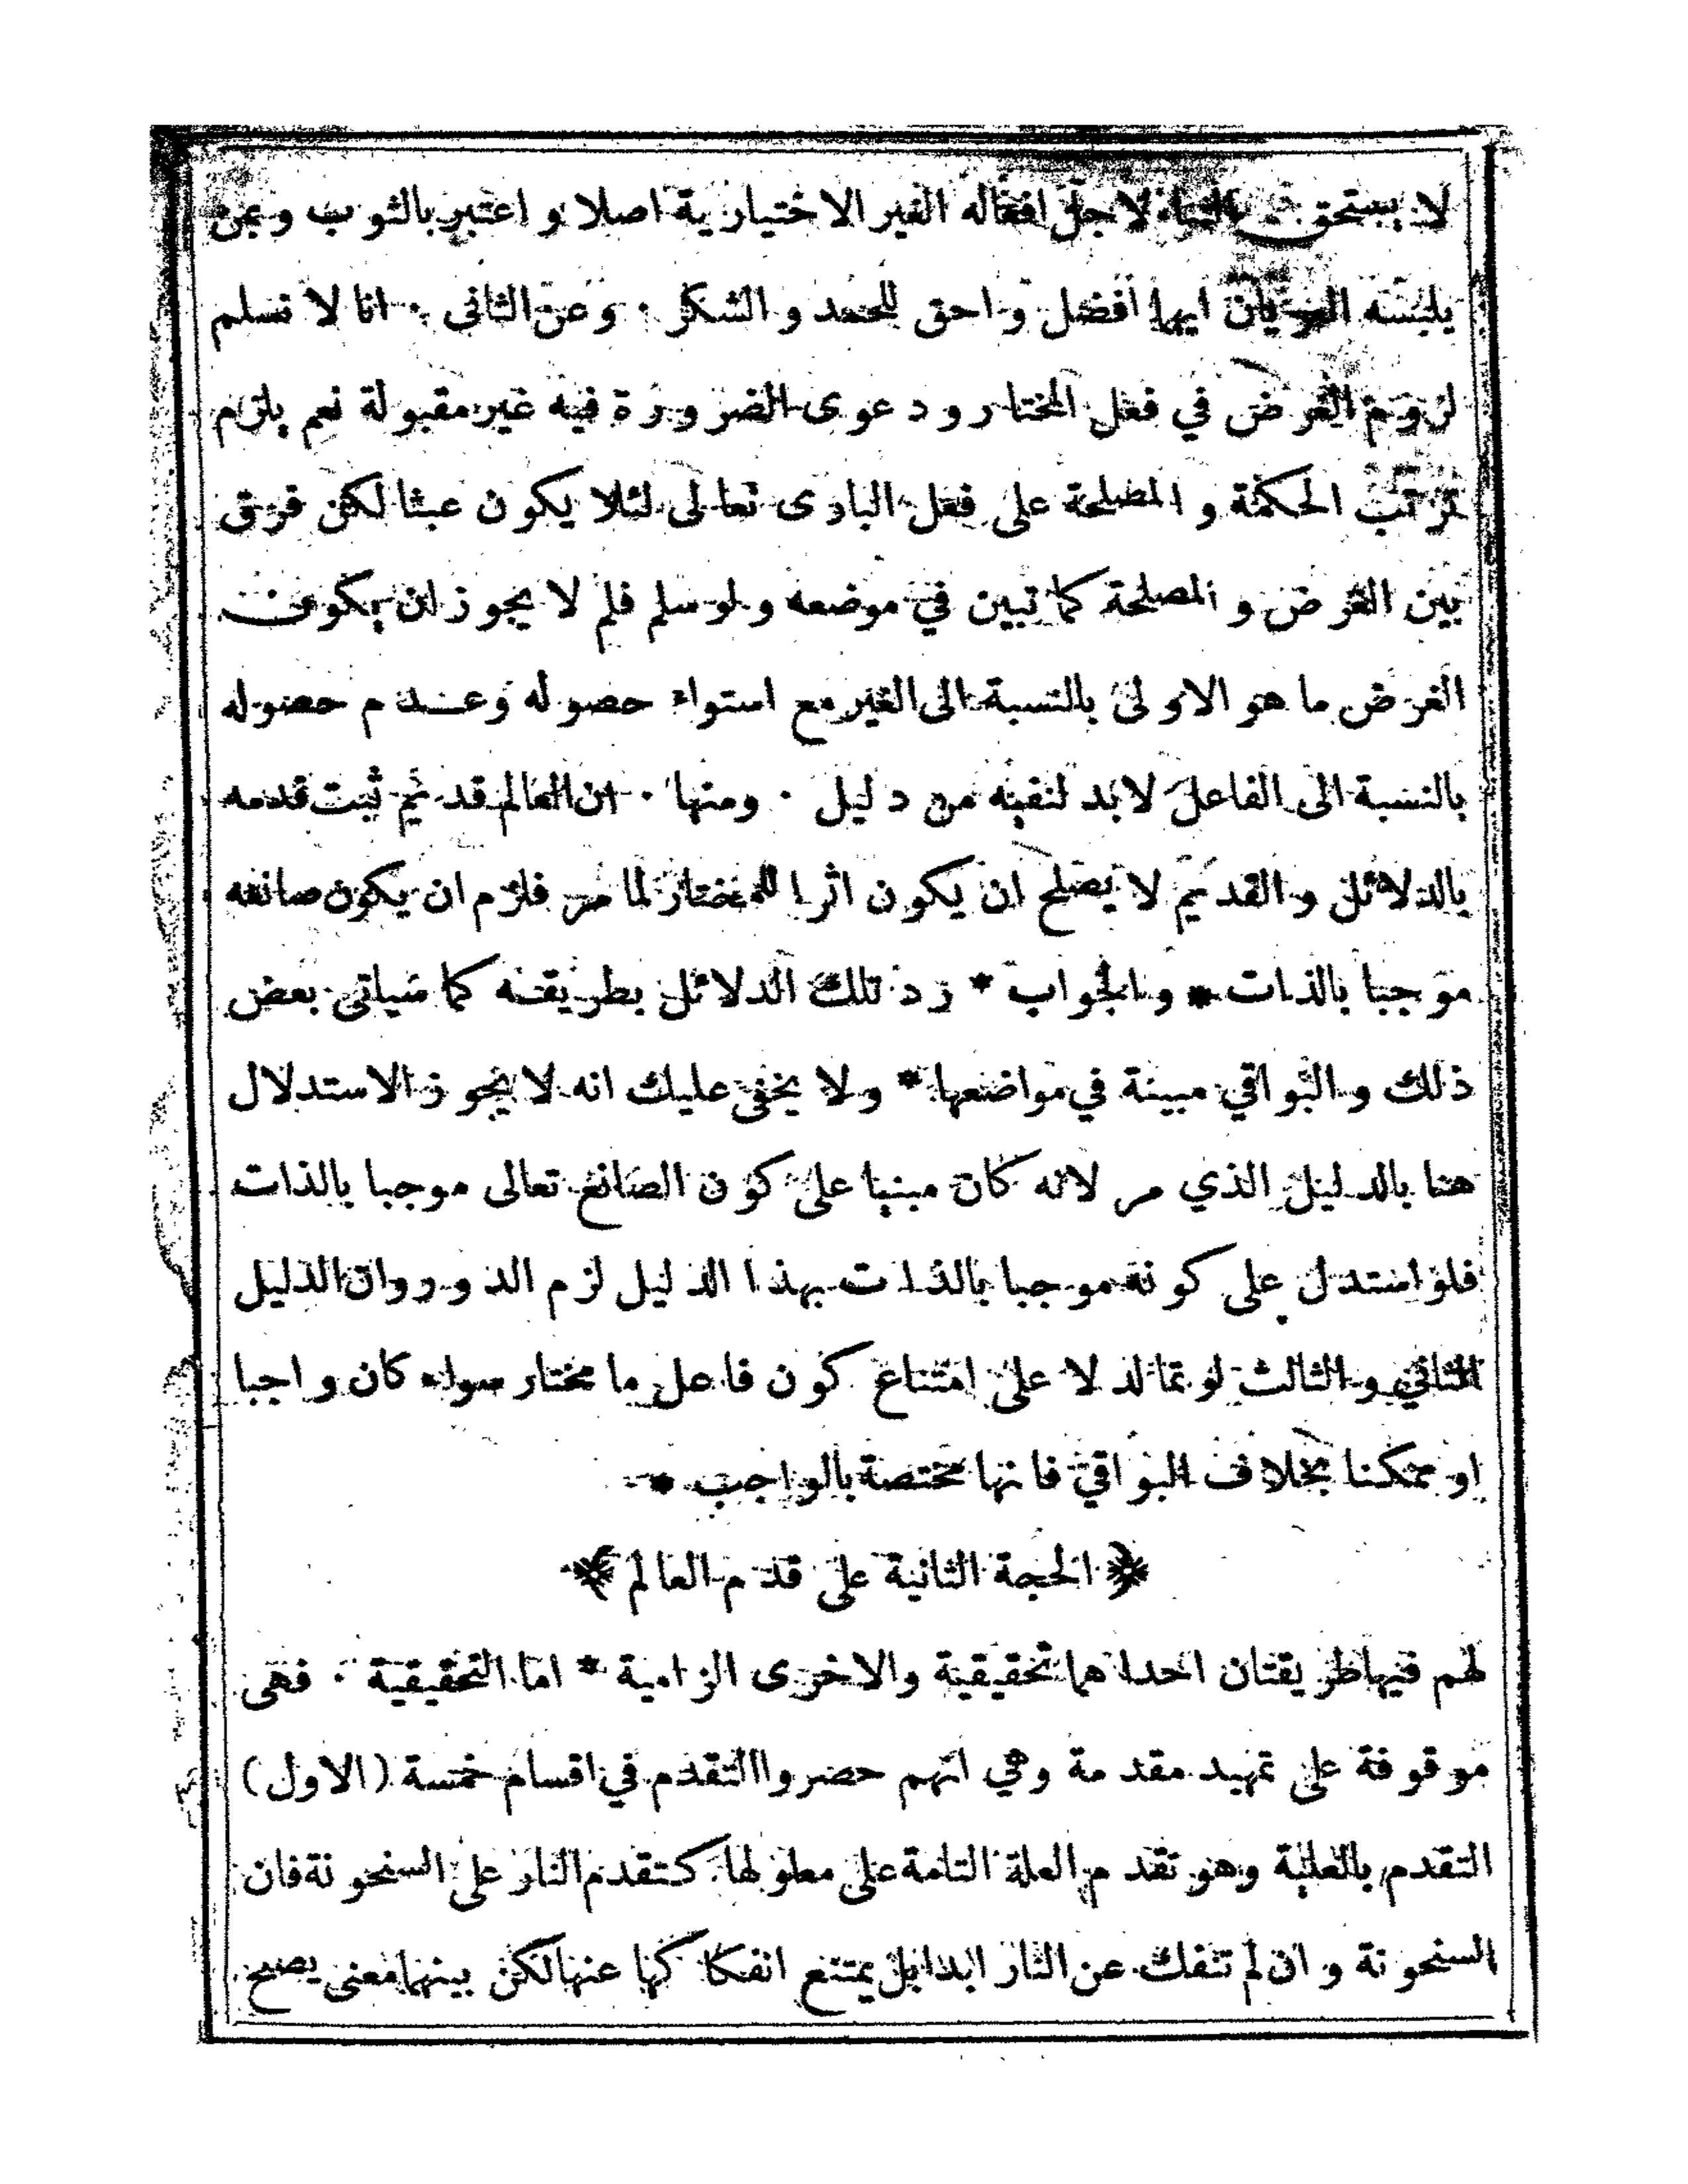 لا يستحق الثناء لاجل افعاله الغير الاختيارية اصلا و اعتبر بالثوب و بمن
يلبسه العريان ايهما افضل و احق للحمد و الشكر · وعن الثانى · انا لا نسلم
لزوم الغرض في فعل المختار و دعوى الضرورة فيه غير مقبولة نعم يلزم
ترتب الحكمة و المصلحة على فعل البارى تعالى لئلا يكون عبثا لكن فرق
بين الغرض و المصلحة كما تبين في موضعه و لو سلم فلم لا يجوز ان يكون
الغرض ما هو الاولى بالنسبة الى الغير مع استواء حصوله وعدم حصوله
بالنسبة الى الفاعل لابد لنفيه من دليل · ومنها · ان العالم قديم ثبت قدمه
بالدلائل و القديم لا يصلح ان يكون اثرا للمختار لما مر فلزم ان يكون صانعه
موجبا بالذات * و الجواب * رد تلك الدلائل بطريقه كما سياتى بعض
ذلك و البواقي مبينة في مواضعها * ولا يخفى عليك انه لا يجوز الاستدلال
هنا بالدليل الذي مر لانه كان مبنيا على كون الصانع تعالى موجبا بالذات
فلو استدل على كونه موجبا بالذات بهذا الدليل لزم الدور وان الدليل
الثاني و الثالث لو تما لدلا على امتناع كون فاعل ما مختار سواء كان واجبا
او ممكنا بخلاف البواقي فانها مختصة بالواجب *
﴿ الحجة الثانية على قدم العالم ﴾
لهم فيها طريقتان احداهما تحقيقية والاخرى الزامية * اما التحقيقية · فهى
موقوفة على تمهيد مقدمة وهي انهم حصروا التقدم في اقسام خمسة (الاول)
التقدم بالعلية وهو تقدم العلة التامة على معلولها كتقدم النار على السخونة فان
السخونة و ان لم تنفك عن النار ابدا بل يمتنع انفكاكها عنها لكن بينهما معنى يصحح